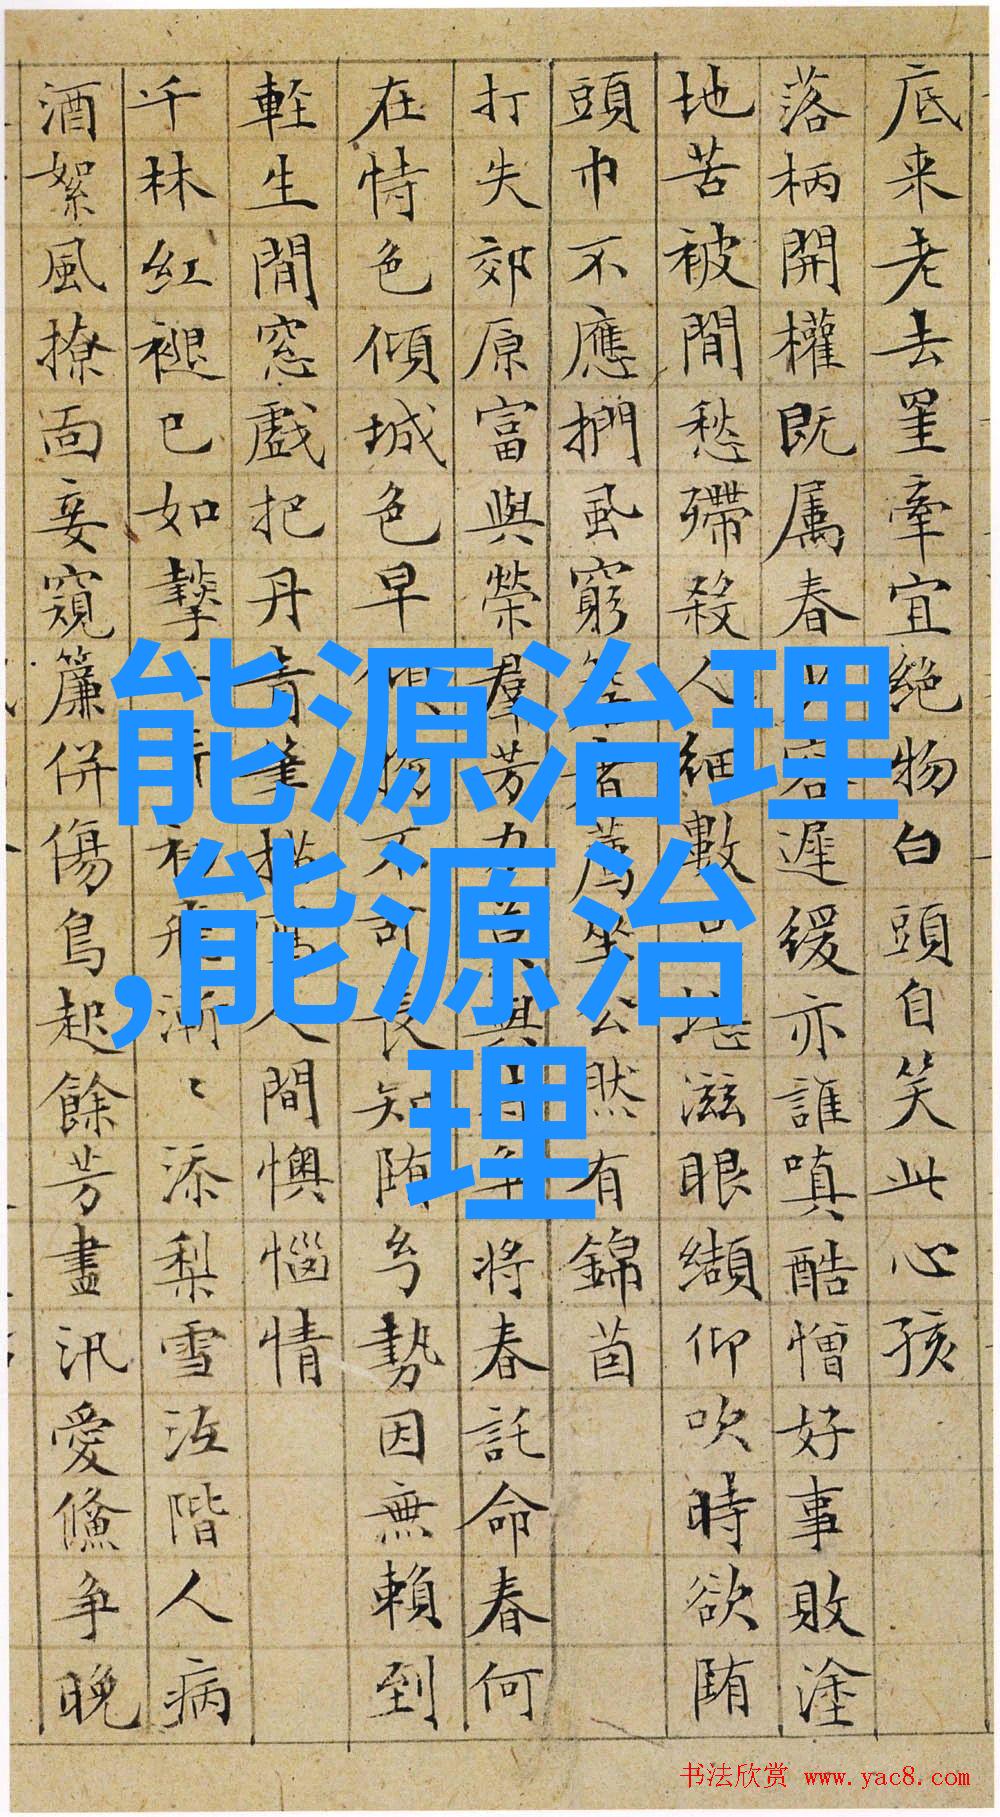 能源治理
,能源治
理
底来老去罣牵宜絶物白頭自笑此心孩
落柄開權既属春容遲緩亦誰嗔酷憎好事敗塗
地苦被閒愁殢殺人細數堪滋眼纈仰吹時欲陏
頭巾不應捫虱窮坐公然有錦茵
打失郊原富與榮羣芳力与将春託命春何
在恃色傾城色早物不可長知陏兮勢因無賴到
軽生閒窓戲把丹青筆描人間懊惱情
千林红褪已如漸〻添梨雪迋階人病
酒絮風撩面妾窺簾併傷鳥起餘芳盡汛愛鯈争晚
书法欣赏 www.yac8.com